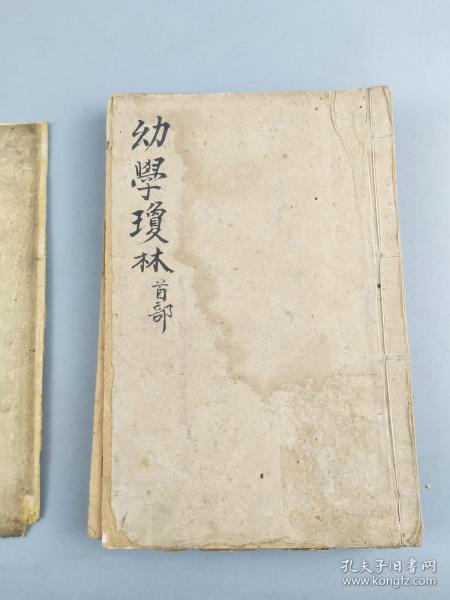 幼學瓊林
首部
孔夫子旧书网
www.kongfz.com